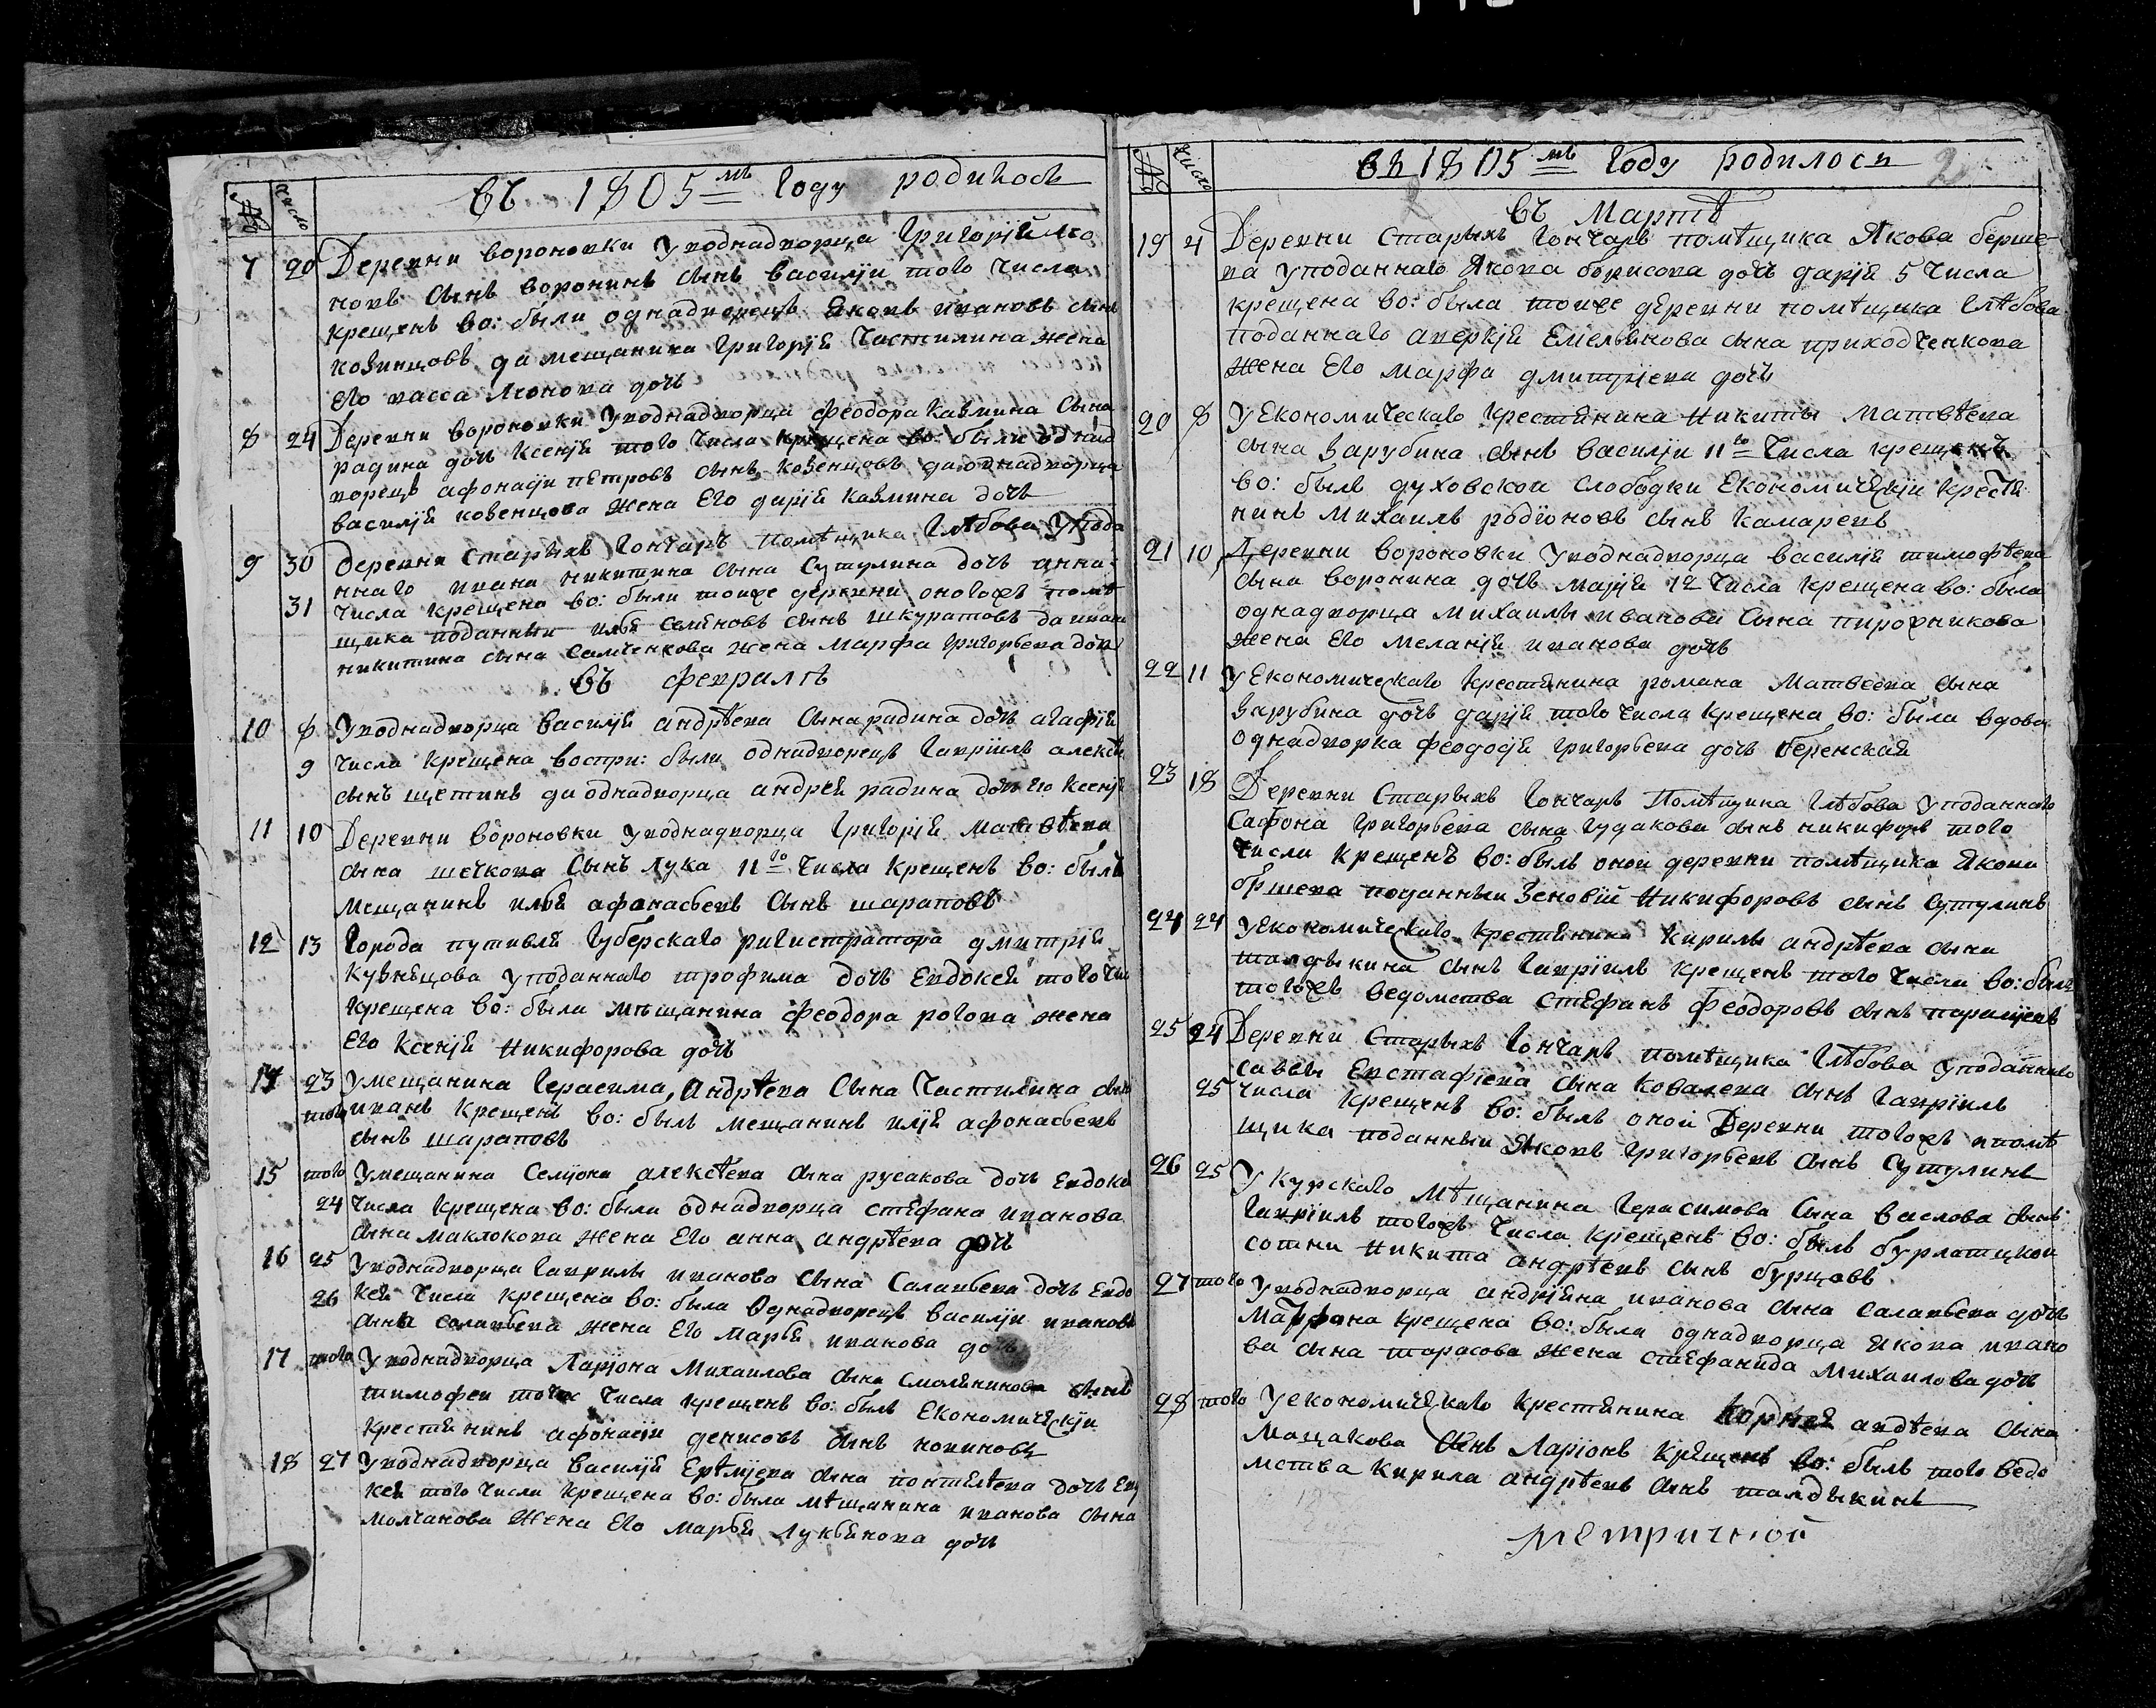 № Число
въ 1805мъ году родилось
7 20 Деревни вороновки уводнадворца Григорїй Лео
новъ сынъ воронинъ сынъ василїи того числа
крещенъ во: были однадворецъ Яковъ ивановъ сынъ
ковинцовъ да мещанина григорїя Частилина жена
его васса леонова дочь
8 24 Деревни вороновки уводнадворца феодора кавмина сына
радина дочь Ксенїя того числа крещена во: были однад
ворецъ афонасїи петровъ сынъ ковенцовъ да однадворца
василїя ковенцова жена его дарїя кавмина дочь
9 30 деревни старыхъ гончаръ помѣщика глѣбова упода
ннаго ивана никитина сына Сутулина дочь анна
31 числа крещена во: были тоиже деревни оногожъ помѣ
щика поданныи илья семеновъ сынъ шкуратовъ да иван
никитина сына самченкова жена марфа григорьева дочь
въ февралѣ
10 8 Уводнадворца василїя андрѣева сына радина дочь агафїя
9 числа крещена воспри: были однадворецъ гаврїилъ алексѣ
сынъ щетинъ да однадворца андрея радина дочь его ксенїя
11 10 Деревни вороновки уводнадворца григорїя матвѣева
сына шечкова сынъ лука 11го числа крещенъ во: былъ
мещанинъ илья афанасьевъ сынъ шараповъ
12 13 города путивля губерскагоригистратора дмитрїя
кузнецова уподаннаго трофима дочь евдокея того чи
крещена во: была мѣщанина феодора рогова жена
его ксенїя никифорова дочь
14 23 умещанина герасима андрѣева сына частилина сынъ
того иванъ крещенъ во: былъ мещанинъ илїя афонасьевъ
сынъ шараповъ
15 того умещанина Семїона алексѣева сына русакова дочь евдоке
24 числа крещена во: была однадворца стефана иванова
сына маклокова жена его анна андрѣева дочь
16 25 уводнадворца гаврилы иванова сына Салавьева дочь евдо
26 кея числа крещена во: была однадворецъ василїи ивановъ
сына салавьева жена его марья иванова дочь
17 того уводнадворца Ларїона михаилова сына смолянинова сынъ
тимофеи тогож числа крещенъ во: былъ економическїи
крестянинъ афонасїи денисовъ сынъ новиновъ
18 27 уводнадворца василїя ермлїева сына понтелѣева дочь евд
кея того числа крещена во: была мѣщанина иванова сына
молчанова жена его марья лукьянова дочь
№ Число
въ 1805мъ году родилоси 2
въ Мартѣ
19 4 Деревни Старыхъ гончаръ помѣщика Якова берше
ва уподаннаго Якова борисова дочь дарїя 5 числа
крещена во: была тоиже деревни помѣщика глѣбова
поданнаго аверкїя Емельянова сына приходченкова
жена его марфа дмитрїева дочь
20 8 У Економическаго крестянина Никиты Матвѣева
сына Зарубина сынъ василїи 11го числа крещенъ
во: былъ духовскои слободки Економическїи крестя
нинъ михаилъ родїоновъ сынъ камаревъ
21 10 Деревни вороновки уводнадворца василїя тимофѣева
сына воронина дочь марїя 12 числа крещена во: была
однадворца михаилы иванова сына пирожникова
жена его меланїя иванова дочь
22 11 У Економическаго крестянина романа матвѣева сына
Зарубина дочь дарїя того числа крещена во: была вдова
однадворка феодосїя григорьева дочь беренская
23 18 Деревни Старыхъ гончаръ Помѣщика глѣбова уподаннаго
Сафона григорьева сына гудакова сынъ никифоръ того
числа крещенъ во: былъ онои деревни помѣщика Якова
бршева поданныи Зеновїй Никифоровъ сынъ Сутулинъ
24 24 Уекономическаго крестянина кирилы андрѣева сына
талдыкина сынъ гаврїилъ крещенъ того числа во: былъ
тогожъ ведомства стефанъ феодоровъ сынъ
25 24 Деревни Старыхъ гончаръ помѣщика глѣбова уподаннаго
савы Евстафїева сына ковалева сынъ гаврїилъ
25 числа крещенъ во: былъ оной Деревни тогожъ помѣ
щика поданныи Яковъ григорьевъ сынъ Сутулинъ
26 25 У Курскаго мѣщанина герасимова сына васлова сынъ
гаврїилъ тогожъ числа крещенъ во: былъ бурлатцкои
сотни Никита андрѣевъ сынъ бурцовъ
27 того уводнадворца андрїяна иванова сына салавьева дочь
матрона крещена во: была однадворца якова ивано
ва сына тарасова жена стефанида михаилова дочь
28 того уекономическаго крестянина Корнея авдѣева сына
мацакова сынъ Ларїонъ крещенъ во: былъ того ведо
мства кирила андрѣевъ сынъ талдыкинъ
метричной